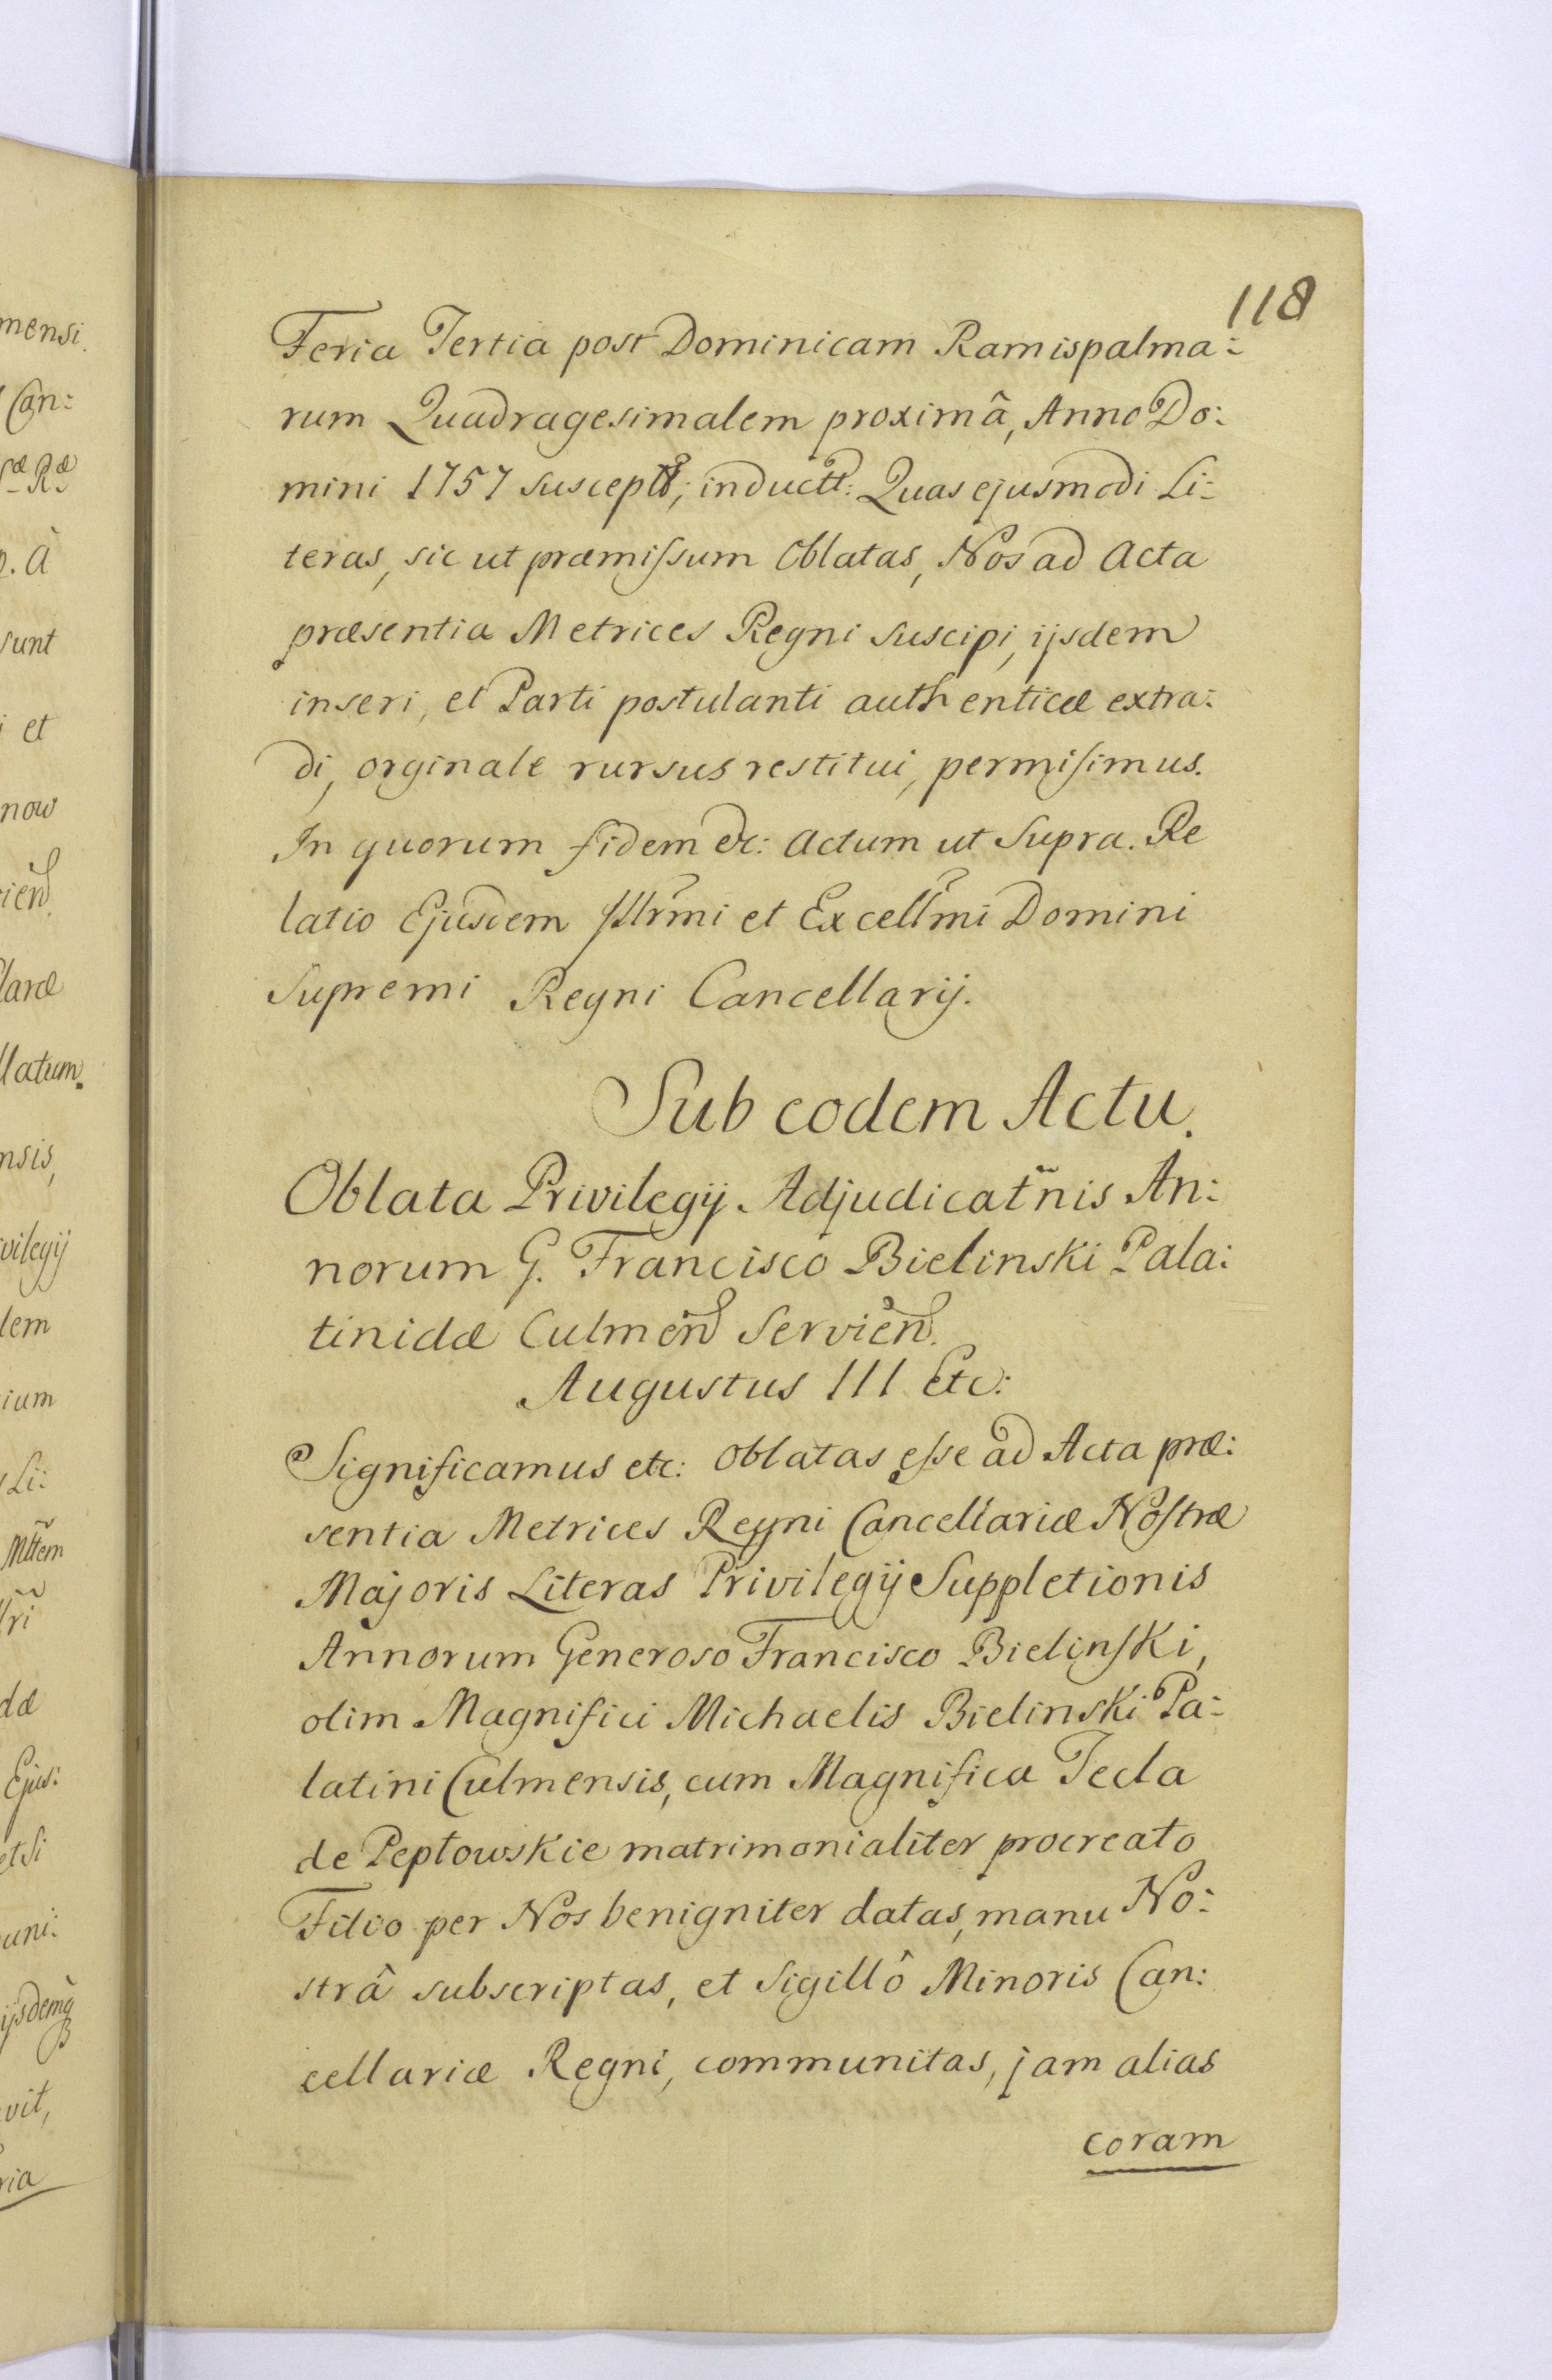 118
Feria Tertia post Dominicam Ramispalma:
rum Quadragesimalem proximâ, Anno Do:
mini 1757 suscept; inductt: Quas ejusmodi Li:
teras, sic ut præmissum Oblatas, Nos ad Acta
præsentia Metrices Regni suscipi, ijsdem
inseri, et Parti postulanti authenticæ extra:
di, orginale rursus restitui, permisimus.
In quorum fidem etc: Actum ut Supra. Re
latio Ejusdem Illr̃mi et Excell̃mi Domini
Supremi Regni Cancellarij.
Sub eodem Actu.
Oblata Privilegij Adjudicat̃nis An:
norum G. Francisco Bielinski Pala:
tinidæ Culmen̄ Servien̄.
Augustus III Etc:
Significamus etc: Oblatas esse ad Acta præ:
sentia Metrices Regni Cancellariæ Nostræ
Majoris Literas Privilegij Suppletionis
Annorum Generoso Francisco Bielinski,
olim Magnifici Michaelis Bielinski Pa:
latini Culmensis, cum Magnifica Tecla
de Peptowskie matrimonialiter procreato
Filio per Nos benigniter datas, manu No:
strâ subscriptas, et Sigillô Minoris Can:
cellariæ Regni, communitas, jam alias
coram